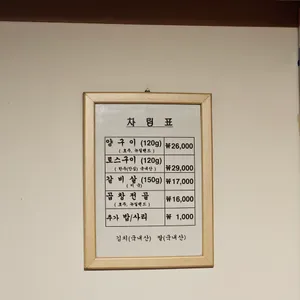 차 림 표
양 구 이 (120g) ₩26,000
( 호주, 뉴질랜드 )
토스구이 (120g) ₩29,000
( 한우(한살) 국내산 )
갈 비 살 (150g) ₩17,000
( 미 국 )
곱 창 전 골 ₩16,000
( 호주, 뉴질랜드 )
추가 밥/사리 ₩ 1,000
김치(국내산) 쌀(국내산)